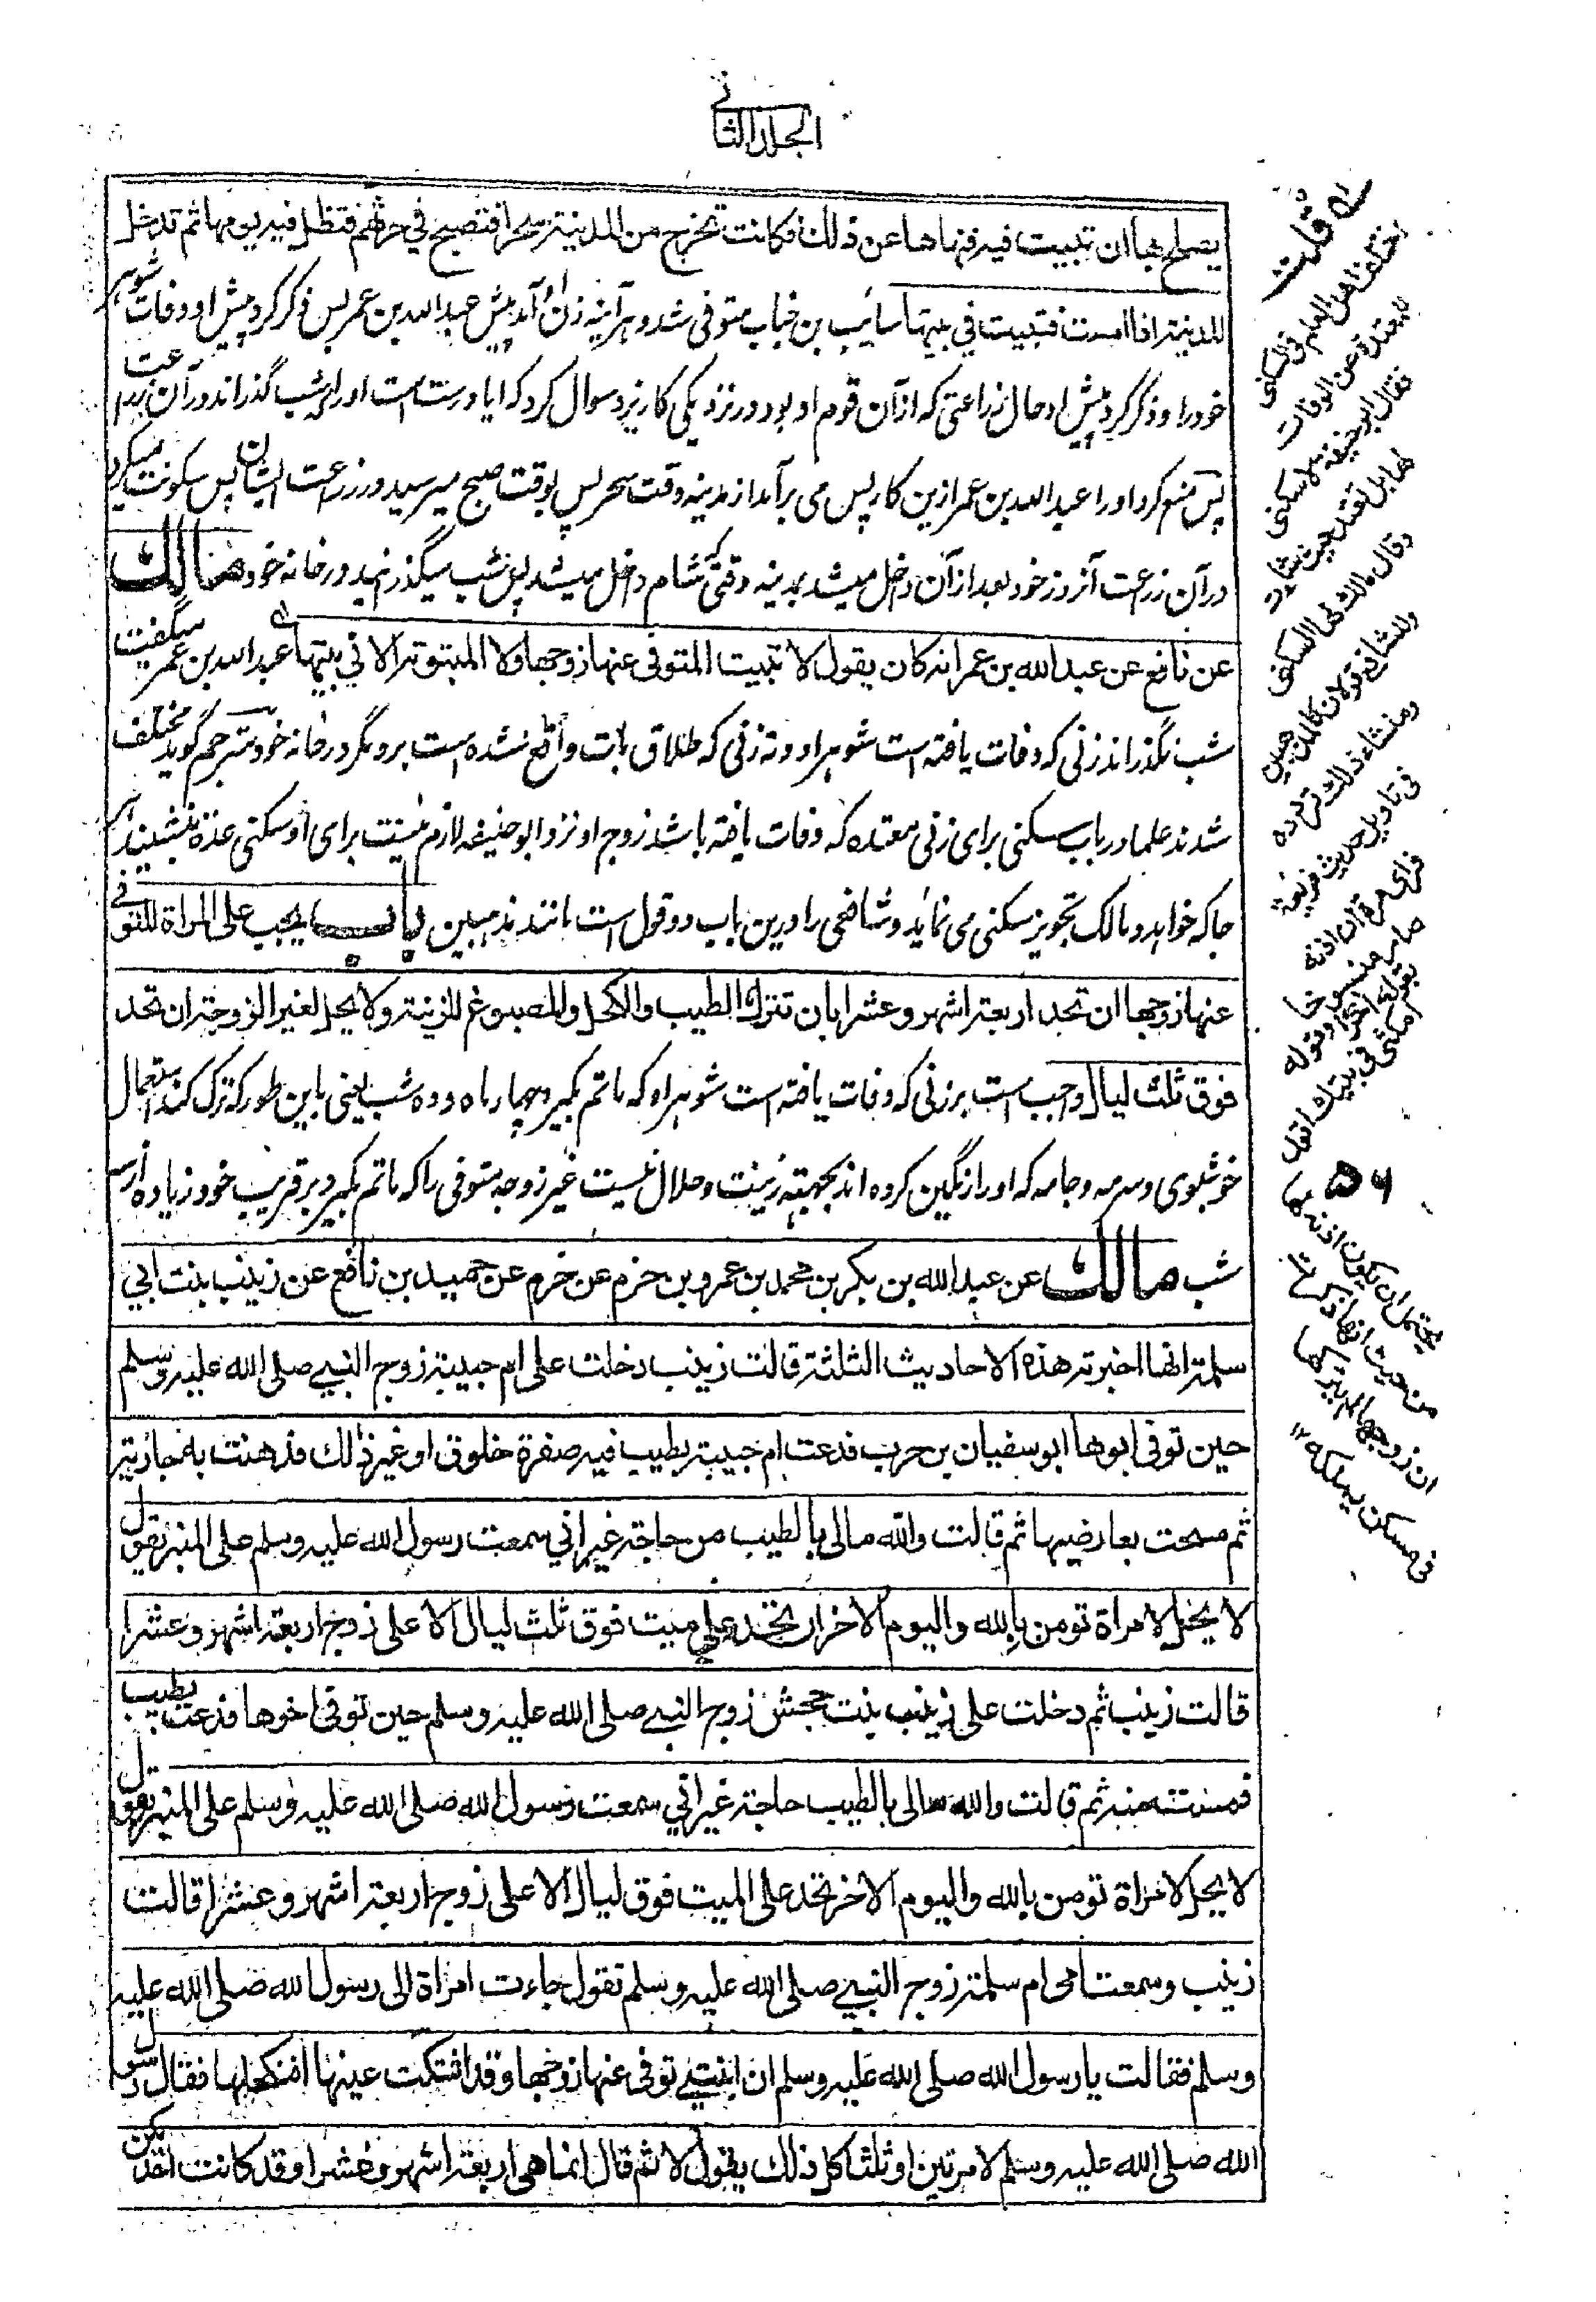 الجلد الثاني
يصلح لها ان تبيت فيه فنهاها عن ذلك فكانت تخرج من المدينة سحرا فتصبح في حرثهم فتظل فيه يومها ثم تدخل
المدينة اذا امست فتبيت في بيتها سايب بن خباب متوفی شد و هر آینه زن او آمد پیش عبد الله بن عمر پس ذکر کرد پیش او وفات شوهر
خود را و ذکر کرد پیش او حال زراعتی که از آن قوم او بود در نزدیکی کاریز و سوال کرد که ایا درست است او را که شب گذراند در آن زراعت
پس منع کرد او را عبد الله بن عمر ازین کار پس می برآمد از مدینه وقت سحر پس بوقت صبح میرسید در زراعت ایشان پس سکونت میکرد
در آن زرعت آنروز خود بعد از آن داخل میشد بمدینه وقتی که شام داخل میشد پس شب میگذرانید در خانه خود مالك
عن نافع عن عبد الله بن عمر انه كان يقول لا تبيت المتوفى عنها زوجها ولا المبتوتة الا في بيتها عبد الله بن عمر میگفت
شب نگذراند زنی که وفات یافته است شوهر او و نه زنی که طلاق بات واقع نشده است برو مگر در خانه خود مترجم گوید مختلف
شدند علما در باب سکنی برای زنی معتده که وفات یافته باشد زوج او نزد ابو حنیفه لازم نیست برای او سکنی عده بنشیند هر
جا که خواهد و مالک تجویز سکنی می نماید و شافعی را درین باب دو قول است مانند مذهبین باب يجب على المراة المتوفى
عنها زوجها ان تحد اربعة اشهر وعشرا بان تترك الطيب والكحل والمصبوغ للزينة ولا يحل لغير الزوجة ان تحد
فوق ثلث ليال واجب است بر زنی که وفات یافته است شوهر او که ماتم بگیرد چهار ماه و ده شب یعنی باین طور که ترک کند استعمال
خوشبوی و سرمه و جامه که او را رنگین کرده اند بجهته زینت و حلال نیست غیر زوجه متوفی را که ماتم بگیرد بر قریب خود زیاده از سه
شب مالك عن عبد الله بن بكر بن محمد بن عمرو بن حزم عن حزم عن حميد بن نافع عن زينب بنت ابي
سلمة انها اخبرته هذه الاحاديث الثلثة قالت زينب دخلت على ام حبيبة زوج النبي صلى الله عليه وسلم
حين توفى ابوها ابو سفيان بن حرب فدعت ام حبيبة بطيب فيه صفرة خلوق او غير ذلك فدهنت به جارية
ثم مسحت بعارضيها ثم قالت والله مالى بالطيب من حاجة غير اني سمعت رسول الله عليه وسلم على المنبر يقول
لا يحل لامراة تومن بالله واليوم الاخر ان تحد على ميت فوق ثلث ليال الا على زوج اربعة اشهر وعشرا
قالت زينب ثم دخلت على زينب بنت جحش زوج النبي صلى الله عليه وسلم حين توفى اخوها فدعت بطيب
فمست منه ثم قالت والله مالى بالطيب حاجة غير اني سمعت رسول الله صلى الله عليه وسلم على المنبر يقول
لا يحل لامراة تومن بالله واليوم الاخر تحد على الميت فوق ليال الا على زوج اربعة اشهر وعشرا قالت
زينب وسمعت امى ام سلمة زوج النبي صلى الله عليه وسلم تقول جاءت امراة الى رسول الله صلى الله عليه
وسلم فقالت يا رسول الله صلى الله عليه وسلم ان ابنتي توفى عنها زوجها وقد اشتكت عينها افنكحلها فقال رسول
الله صلى الله عليه وسلم لا مرتين او ثلثا كل ذلك يقول لا ثم قال انما هى اربعة اشهر وعشرا وقد كانت احدىكن
قلت
اختلف اهل العلم فى السكنى
للمعتدة عن الوفات
فقال ابو حنيفة لا سكنى
لها بل تعتد حيث شاءت
وقال مالك لها السكنى
وللشافعى قولان كالمذهبين
ومنشاء ذلك تردده
فى تاويل حديث فريعة
فراى مرة ان اذنه
صار منسوخا
بقوله اخرا
امكثى فى بيتك
يحتمل ان يكون اذنه لها
من حيث انها ذكرت
ان زوجها لم يتركها
فى مسكن يملكه ١٢